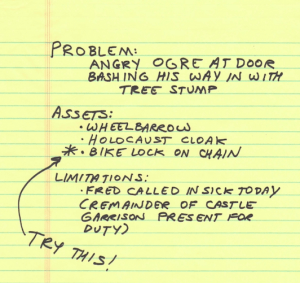 PROBLEM:
ANGRY OGRE AT DOOR
BASHING HIS WAY IN WITH
TREE STUMP
ASSETS:
· WHEELBARROW
· HOLOCAUST CLOAK
* · BIKE LOCK ON CHAIN
LIMITATIONS:
· FRED CALLED IN SICK TODAY
(REMAINDER OF CASTLE
GARRISON PRESENT FOR
DUTY)
TRY THIS!